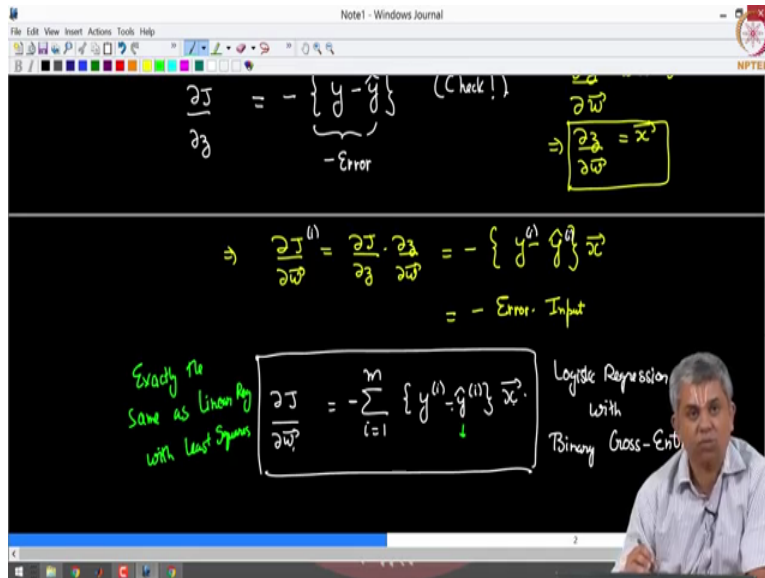 Note1 - Windows Journal
File Edit View Insert Actions Tools Help
B I
NPTEL
∂J/∂z = - { y - ŷ } (Check!)
- Error
∂w⃗
⇒ ∂z/∂w⃗ = x⃗
⇒ ∂J^(i)/∂w⃗ = ∂J/∂z · ∂z/∂w⃗ = - { y^(i) - ŷ^(i) } x⃗
= - Error. Input
Exactly the
Same as Linear Reg
with Least Squares
∂J/∂w⃗ = - Σ_{i=1}^{m} { y^(i) - ŷ^(i) } x⃗.
Logistic Regression
with
Binary Cross-Ent
2